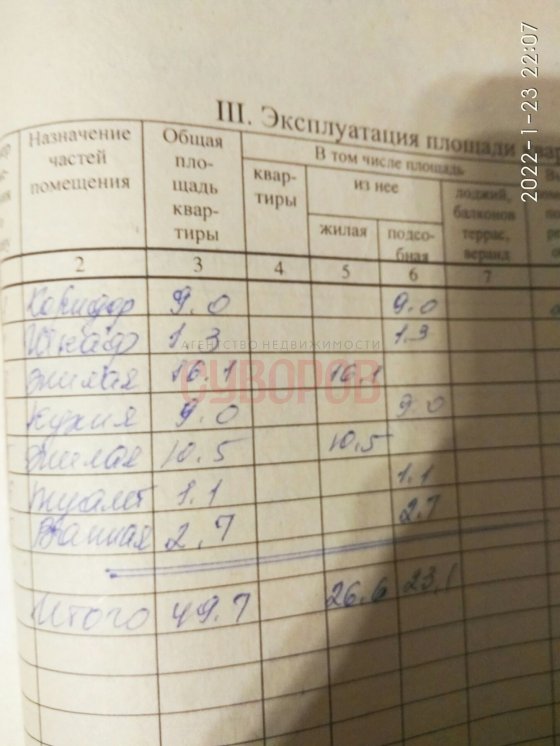 2022-1-23 22:07
III. Эксплуатация площади квар
Назначение частей помещения
Общая пло-щадь квар-тиры
В том числе площадь
квар-тиры
из нее
жилая
подсо-бная
лоджий, балконов террас, веранд
2 3 4 5 6 7
Коридор 9.0 9.0
Шкаф 1.3 1.3
АГЕНТСТВО НЕДВИЖИМОСТИ
Жилая 16.1 16.1
СУВОРОВ
Кухня 9.0 9.0
Жилая 10.5 10.5
Туалет 1.1 1.1
Ванная 2.7 2.7
Итого 49.7 26.6 23.1